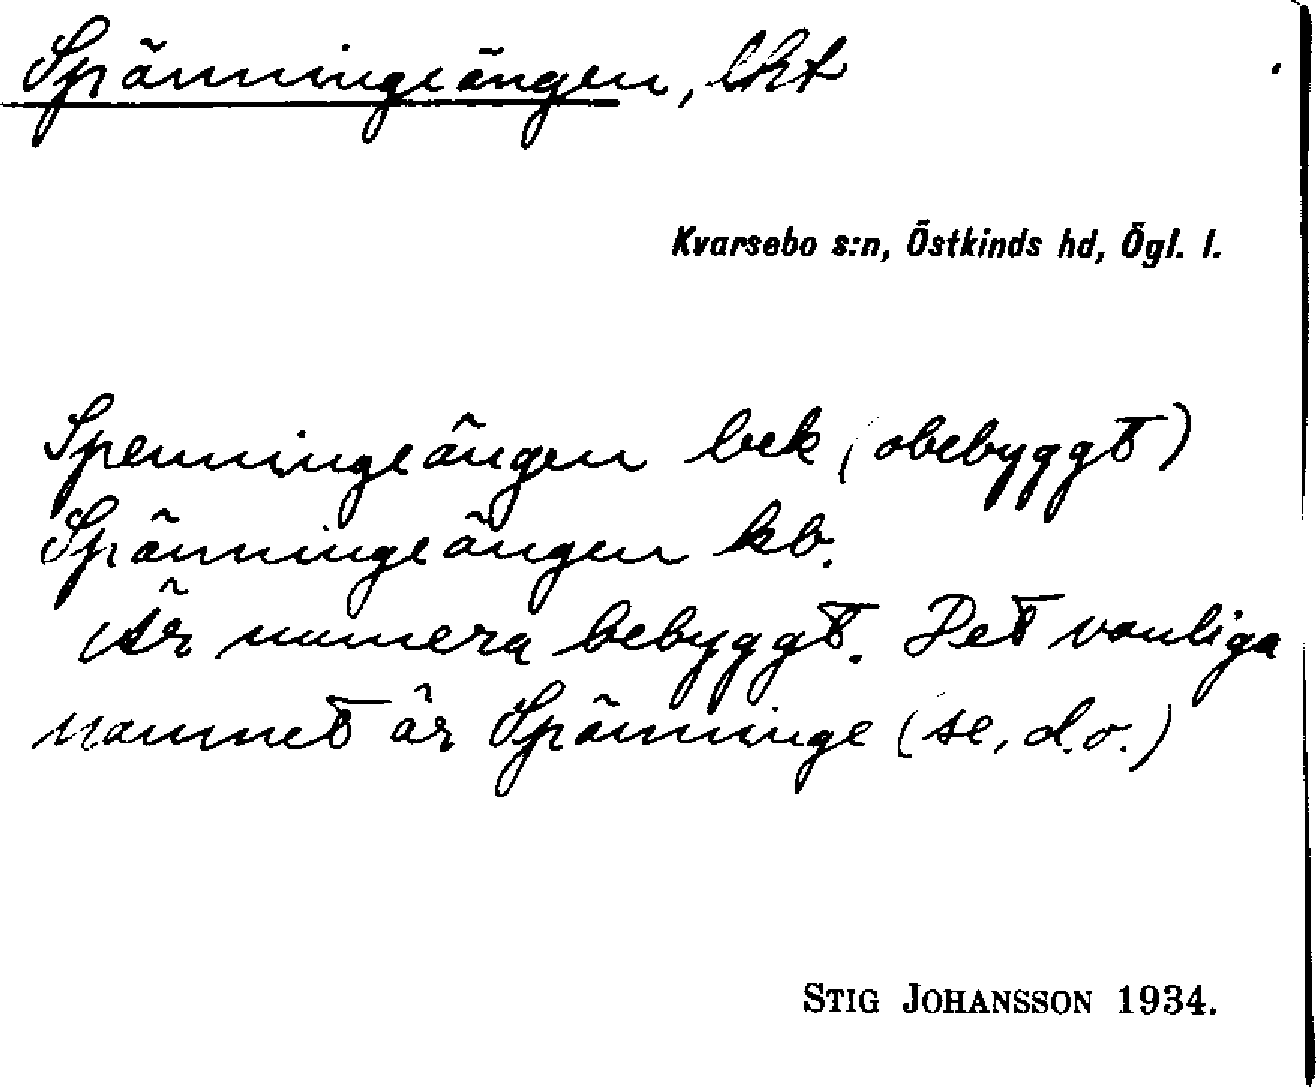 Spänningeängen, lht
Kvarsebo s:n, Östkinds hd, Ögl. l.
Spenningeängen bek (obebyggt)
Spänningeängen kb.
Är numera bebyggt. Det vanliga
namnet är Spänninge (se, d.o.)
STIG JOHANSSON 1934.